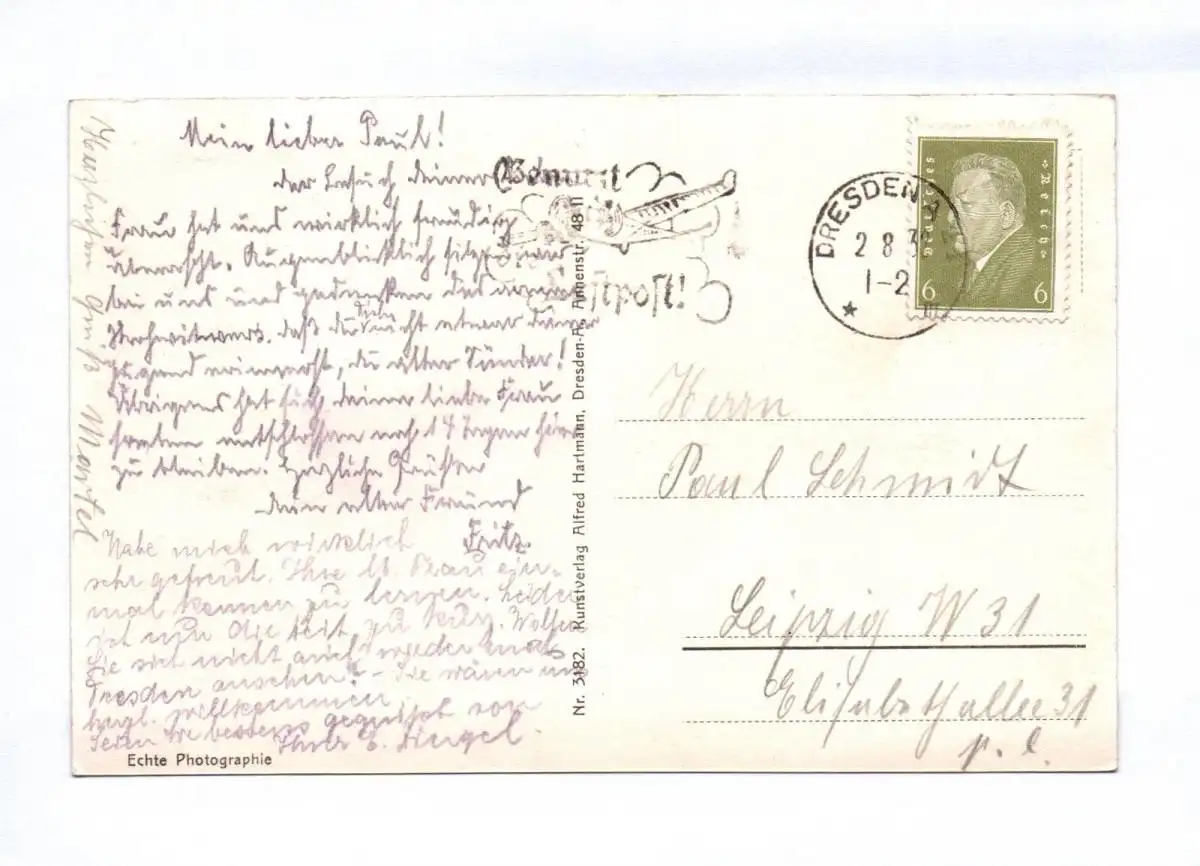 Mein lieber Paul!
der Besuch deiner
Frau hat uns wirklich freudig
überrascht. Augenblicklich sitzen wir
bei uns und gedenken des
daß du dich nicht etwa deiner
Jugend erinnerst, du alter Sünder!
Übrigens hat sich deine liebe Frau
soeben entschlossen noch 14 Tage hier
zu bleiben. Herzliche Grüße
dein alter Freund
Fritz.
Habe mich wirklich
sehr gefreut. Ihre lb. Frau ein-
mal kennen zu lernen. Leider
ist nur die Zeit zu kurz. Wollen
Sie sich nicht auch wieder mal
Dresden ansehen? - Sie wären uns
hrzl. willkommen
Seien Sie bestens gegrüßt von
Ihrer E.
Herzlichen Gruß Martel
Echte Photographie
Nr. 3182. Kunstverlag Alfred Hartmann, Dresden-A., Annenstr. 48-11
Benutzt
die
Luftpost!
DRESDEN A
2 8 3
1-2
Deutsches Reich
6 6
Herrn
Paul Schmidt
Leipzig W 31
Elisabethallee 31
p. l.